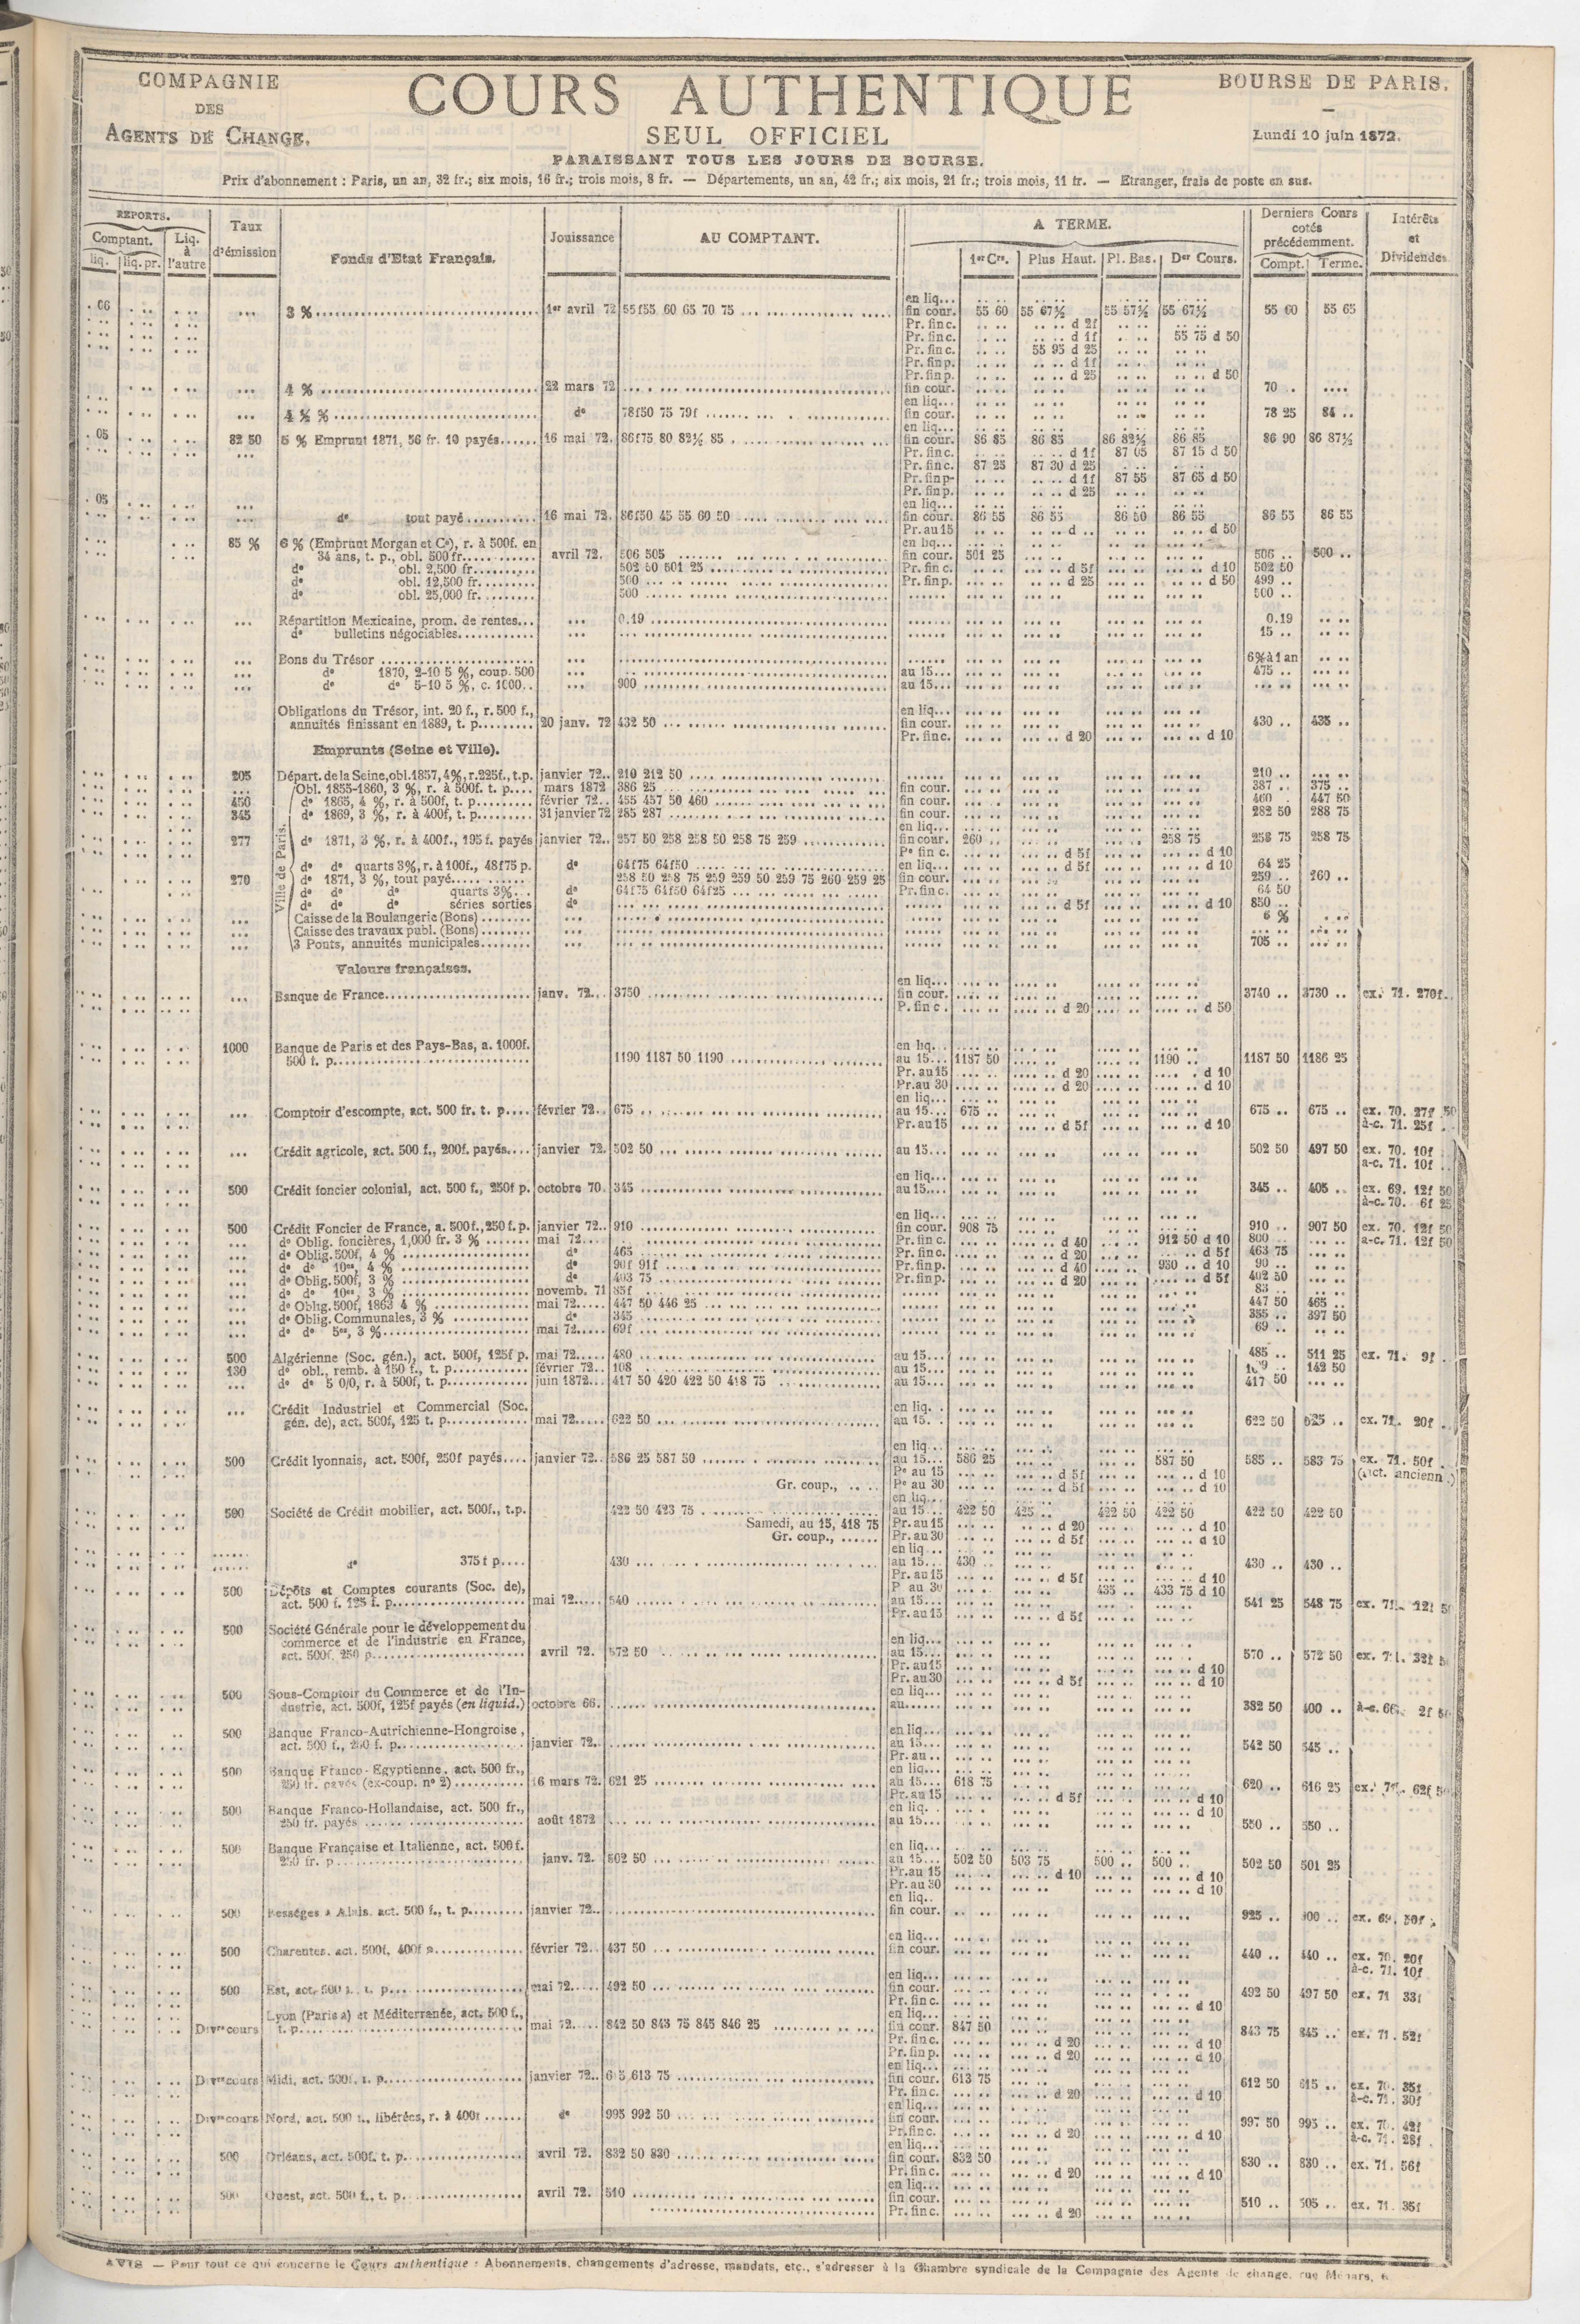 COMPAGNIE
DES
AGENTS DE CHANGE.
COURS AUTHENTIQUE
SEUL OFFICIEL
PARAISSANT TOUS LES JOURS DE BOURSE.
BOURSE DE PARIS.
Lundi 10 juin 1872.
Prix d'abonnement : Paris, un an, 32 fr.; six mois, 16 fr.; trois mois, 8 fr. — Départements, un an, 42 fr.; six mois, 21 fr.; trois mois, 11 fr. — Etranger, frais de poste en sus.
REPORTS. Comptant. liq. liq. pr. Liq. à l'autre Taux d'émission Fonds d'Etat Français. Jouissance AU COMPTANT. A TERME. 1er Crs. Plus Haut. Pl. Bas. Der Cours. Derniers Cours cotés précédemment. Compt. Terme. Intérêts et Dividendes
en liq...
. 06 3 % 1er avril 72 55f55 60 65 70 75 fin cour. 55 60 55 67½ 55 57½ 55 67½ 55 60 55 65
Pr. fin c. d 2f
Pr. fin c. d 1f 55 75 d 50
Pr. fin c. 55 95 d 25
Pr. fin p. d 1f
Pr. fin p. d 25 d 50
4 % 22 mars 72 fin cour. 70 ..
en liq...
4 ½ % do 78f50 75 79f fin cour. 78 25 84 ..
en liq...
. 05 82 50 5 % Emprunt 1871, 56 fr. 10 payés 16 mai 72. 86f75 80 82½ 85 fin cour. 86 85 86 85 86 82½ 86 85 86 90 86 87½
Pr. fin c. d 1f 87 05 87 15 d 50
Pr. fin c. 87 25 87 30 d 25
Pr. fin p- d 1f 87 55 87 65 d 50
Pr. fin p. d 25
. 05 en liq...
do tout payé 16 mai 72. 86f50 45 55 60 50 fin cour. 86 55 86 55 86 50 86 55 86 55 86 55
Pr. au 15 d .. d 50
85 % 6 % (Emprunt Morgan et Ce), r. à 500f. en en liq...
34 ans, t. p., obl. 500 fr. avril 72. 506 505 fin cour. 501 25 506 .. 500 ..
do obl. 2,500 fr. 502 50 501 25 Pr. fin c. d 5f d 10 502 50
do obl. 12,500 fr. 500 Pr. fin p. d 25 d 50 499 ..
do obl. 25,000 fr. 500 500 ..
Répartition Mexicaine, prom. de rentes... 0.19 0.19
do bulletins négociables 15 ..
Bons du Trésor 6%à1an
do 1870, 2-10 5 %, coup. 500 au 15... 475 ..
do do 5-10 5 %, c. 1000.. 900 au 15...
Obligations du Trésor, int. 20 f., r. 500 f., en liq...
annuités finissant en 1889, t. p. 20 janv. 72 432 50 fin cour. 430 .. 435 ..
Pr. fin c. d 20 d 10
Emprunts (Seine et Ville).
205 Départ. de la Seine, obl. 1857, 4%, r. 225f., t.p. janvier 72.. 210 212 50 210 ..
Ville de Paris.
Obl. 1855-1860, 3 %, r. à 500f. t. p. mars 1872 386 25 fin cour. 387 .. 375 ..
450 do 1865, 4 %, r. à 500f, t. p. février 72.. 455 457 50 460 fin cour. 460 . 447 50
345 do 1869, 3 %, r. à 400f, t. p. 31 janvier 72 285 287 fin cour. 282 50 288 75
en liq...
277 do 1871, 3 %, r. à 400f., 195 f. payés janvier 72.. 257 50 258 258 50 258 75 259 fin cour. 260 258 75 258 75 258 75
Pe fin c. d 5f d 10
do do quarts 3%, r. à 100f., 48f75 p. do 64f75 64f50 en liq... d 5f d 10 64 25
270 do 1871, 3 %, tout payé 258 50 258 75 259 259 50 259 75 260 259 25 fin cour. 259 .. 260 ..
do do do quarts 3%... do 64f75 64f50 64f25 Pr. fin c. 64 50
do do do séries sorties do d 5f d 10 850 ..
Caisse de la Boulangerie (Bons) 6 %
Caisse des travaux publ. (Bons)
3 Ponts, annuités municipales 705 ..
Valeurs françaises.
en liq...
Banque de France janv. 72... 3750 fin cour. 3740 .. 3730 .. ex. 71. 270f..
P. fin c. d 20 d 50
1000 Banque de Paris et des Pays-Bas, a. 1000f. en liq.
500 f. p. 1190 1187 50 1190 au 15... 1187 50 1190 .. 1187 50 1186 25
Pr. au 15 d 20 d 10
Pr. au 30 d 20 d 10
en liq...
Comptoir d'escompte, act. 500 fr. t. p. février 72. 675 au 15... 675 .. 675 .. 675 .. ex. 70. 27f 50
Pr. au 15 d 5f d 10 à-c. 71. 25f
Crédit agricole, act. 500 f., 200f. payés.... janvier 72. 502 50 au 15... 502 50 497 50 ex. 70. 10f
a-c. 71. 10f
en liq...
500 Crédit foncier colonial, act. 500 f., 250f p. octobre 70. 345 au 15... 345 .. 405 .. ex. 69. 12f 50
à-c. 70. 6f 25
en liq...
500 Crédit Foncier de France, a. 500 f., 250 f. p. janvier 72.. 910 fin cour. 908 75 910 .. 907 50 ex. 70. 12f 50
do Oblig. foncières, 1,000 fr. 3 % mai 72 Pr. fin c. d 40 912 50 d 10 800 a-c. 71. 12f 50
do Oblig. 500f, 4 % do 465 Pr. fin c. d 20 d 5f 463 75
do do 10es, 4 % do 90f 91f Pr. fin p. d 40 930 .. d 10 90 ..
do Oblig. 500f, 3 % do 403 75 Pr. fin p. d 20 d 5f 402 50
do do 10es, 3 % novemb. 71 85f 83 ..
do Oblig. 500f, 1863 4 % mai 72 447 50 446 25 447 50 465 ..
do Oblig. Communales, 3 % do 345 355 .. 397 50
do do 5es, 3 % mai 72 69f 69 ..
500 Algérienne (Soc. gén.), act. 500f, 125f p. mai 72 480 au 15... 485 .. 511 25 ex. 71. 9f
130 do obl., remb. à 150 f., t. p. février 72.. 108 au 15... 142 50
do do 5 0/0, r. à 500f, t. p. juin 1872 417 50 420 422 50 418 75 au 15... 417 50
Crédit Industriel et Commercial (Soc. en liq.
gén. de), act. 500f, 125 t. p. mai 72 622 50 au 15. 622 50 625 .. ex. 71. 20f
en liq...
500 Crédit lyonnais, act. 500f, 250f payés.... janvier 72.. 586 25 587 50 au 15... 586 25 587 50 585 .. 583 75 ex. 71. 50f
Pe au 15 d 5f d 10
Gr. coup., Pe au 30 d 5f d 10
en liq...
500 Société de Crédit mobilier, act. 500f., t.p. 422 50 423 75 au 15... 422 50 425 .. 422 50 422 50 422 50 422 50
Samedi, au 15, 418 75 Pr. au 15 d 20 d 10
Gr. coup., Pr. au 30 d 5f d 10
en liq...
do 375 f p. 430 au 15... 430 430 .. 430 ..
Pr. au 15 d 5f d 10
500 Dépôts et Comptes courants (Soc. de), P au 30 435 .. 433 75 d 10
act. 500 f. 125 f. p. mai 72 540 au 15... 541 25 548 75 ex. 71. 12f
Pr. au 15 d 5f
500 Société Générale pour le développement du
commerce et de l'industrie en France, en liq...
act. 500f, 250 p. avril 72. 572 50 au 15... 570 .. 572 50
Pr. au 15 d 10
Pr. au 30 d 5f d 10
500 Sous-Comptoir du Commerce et de l'In- en liq...
dustrie, act. 500f, 125f payés (en liquid.) octobre 66. au 382 50 400 .. à-c. 66. 2f
500 Banque Franco-Autrichienne-Hongroise, en liq...
act. 500 f., 250 f. p. janvier 72. au 15... 542 50 545 ..
Pr. au ..
500 Banque Franco-Egyptienne, act. 500 fr., en liq...
250 fr. payés (ex-coup. no 2) 16 mars 72. 621 25 au 15... 618 75 620 .. 616 25
Pr. au 15 d 5f d 10
500 Banque Franco-Hollandaise, act. 500 fr., en liq. d 10
250 fr. payés août 1872 au 15... 550 .. 550 ..
500 Banque Française et Italienne, act. 500 f. en liq...
250 fr. p. janv. 72. 502 50 au 15... 502 50 503 75 500 .. 500 .. 502 50 501 25
Pr. au 15 d 10 d 10
Pr. au 30 d 10
en liq..
500 Bességes à Alais, act. 500 f., t. p. janvier 72.. fin cour. 925 ..
en liq...
500 Charentes, act. 500f, 400f p. février 72.. 437 50 fin cour. 440 .. 440 .. ex. 70. 20f
à-c. 71. 10f
en liq...
500 Est, act. 500 f. t. p. mai 72 492 50 fin cour. 492 50 497 50 ex. 71 33f
Pr. fin c. d 10
Lyon (Paris à) et Méditerranée, act. 500 f., en liq...
Divrs cours t. p. mai 72 842 50 843 75 845 846 25 fin cour. 847 50 843 75 845 .. ex. 71. 52f
Pr. fin c. d 20 d 10
Pr. fin p. d 20 d 10
en liq...
Divrs cours Midi, act. 500f. t. p. janvier 72.. 613 75 fin cour. 613 75 612 50 615 .. ex. 70. 35f
Pr. fin c. d 20 d 10 à-c. 71. 30f
en liq...
Divrs cours Nord, act. 500 f., libérées, r. à 400f do 995 992 50 fin cour. 997 50 995 .. ex. 70. 42f
Pr. fin c. d 20 d 10 à-c. 71. 28f
en liq...
500 Orléans, act. 500f. t. p. avril 72. 832 50 830 fin cour. 832 50 830 .. 830 .. ex. 71. 56f
Pr. fin c. d 20 d 10
en liq...
500 Ouest, act. 500 f., t. p. avril 72. 510 fin cour. 510 .. 505 .. ex. 71. 35f
Pr. fin c. d 20
AVIS — Pour tout ce qui concerne le Cours authentique : Abonnements, changements d'adresse, mandats, etc., s'adresser à la Chambre syndicale de la Compagnie des Agents de change, rue Ménars, 6.